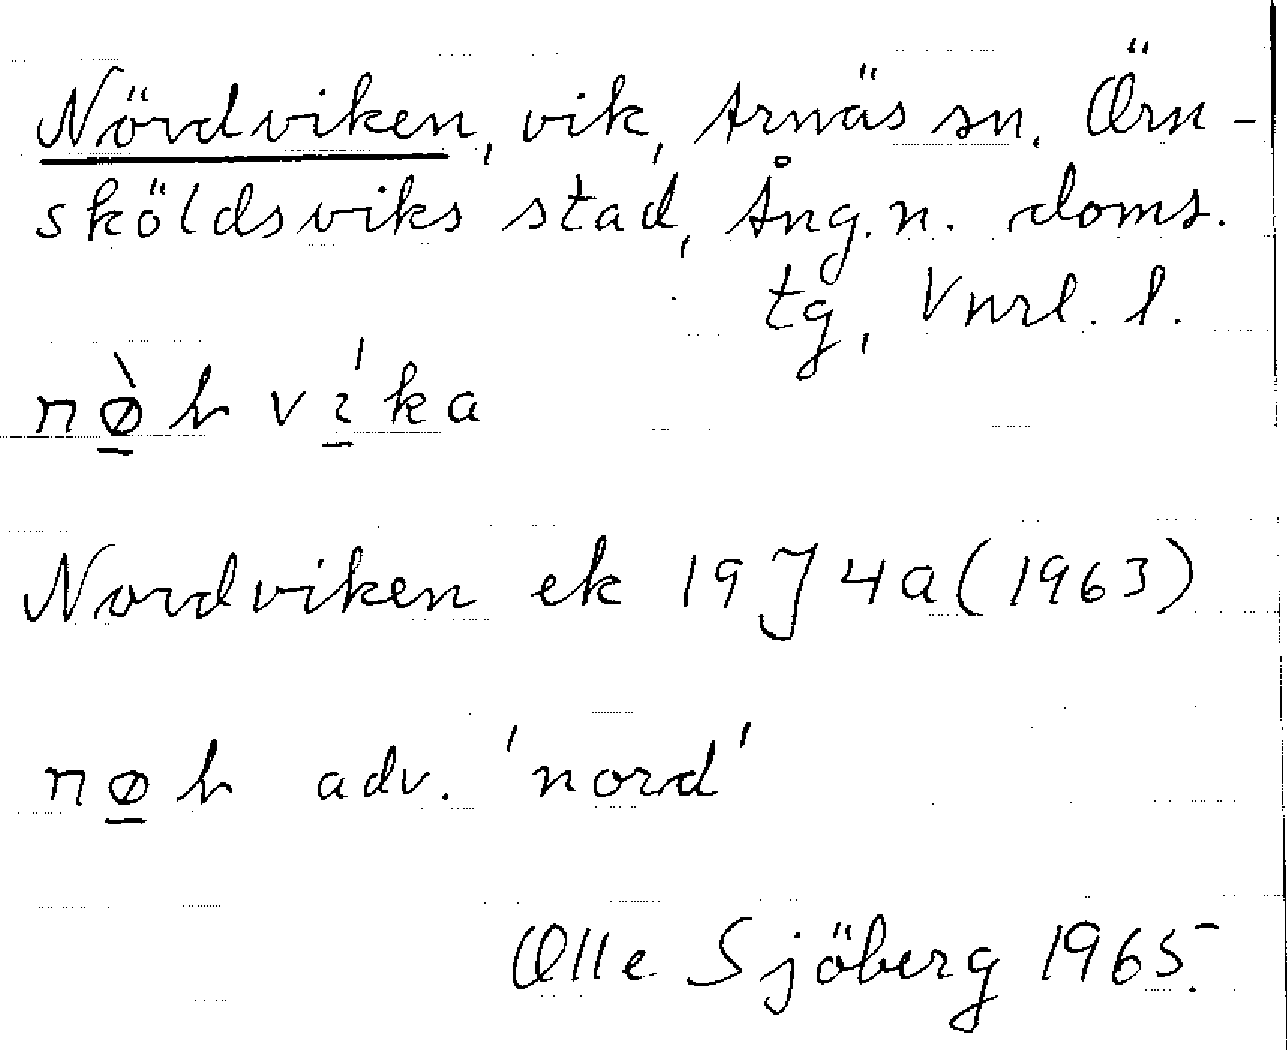 Nördviken, vik, Arnäs sn. Örn-
sköldsviks stad, Ång. n. doms.
tg, Vnrl. l.
Nordviken ek 19J4a (1963)
adv. 'nord'
Olle Sjöberg 1965.